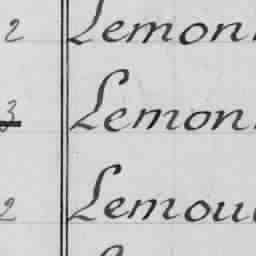 2 Lemon
3 Lemon
2 Lemou